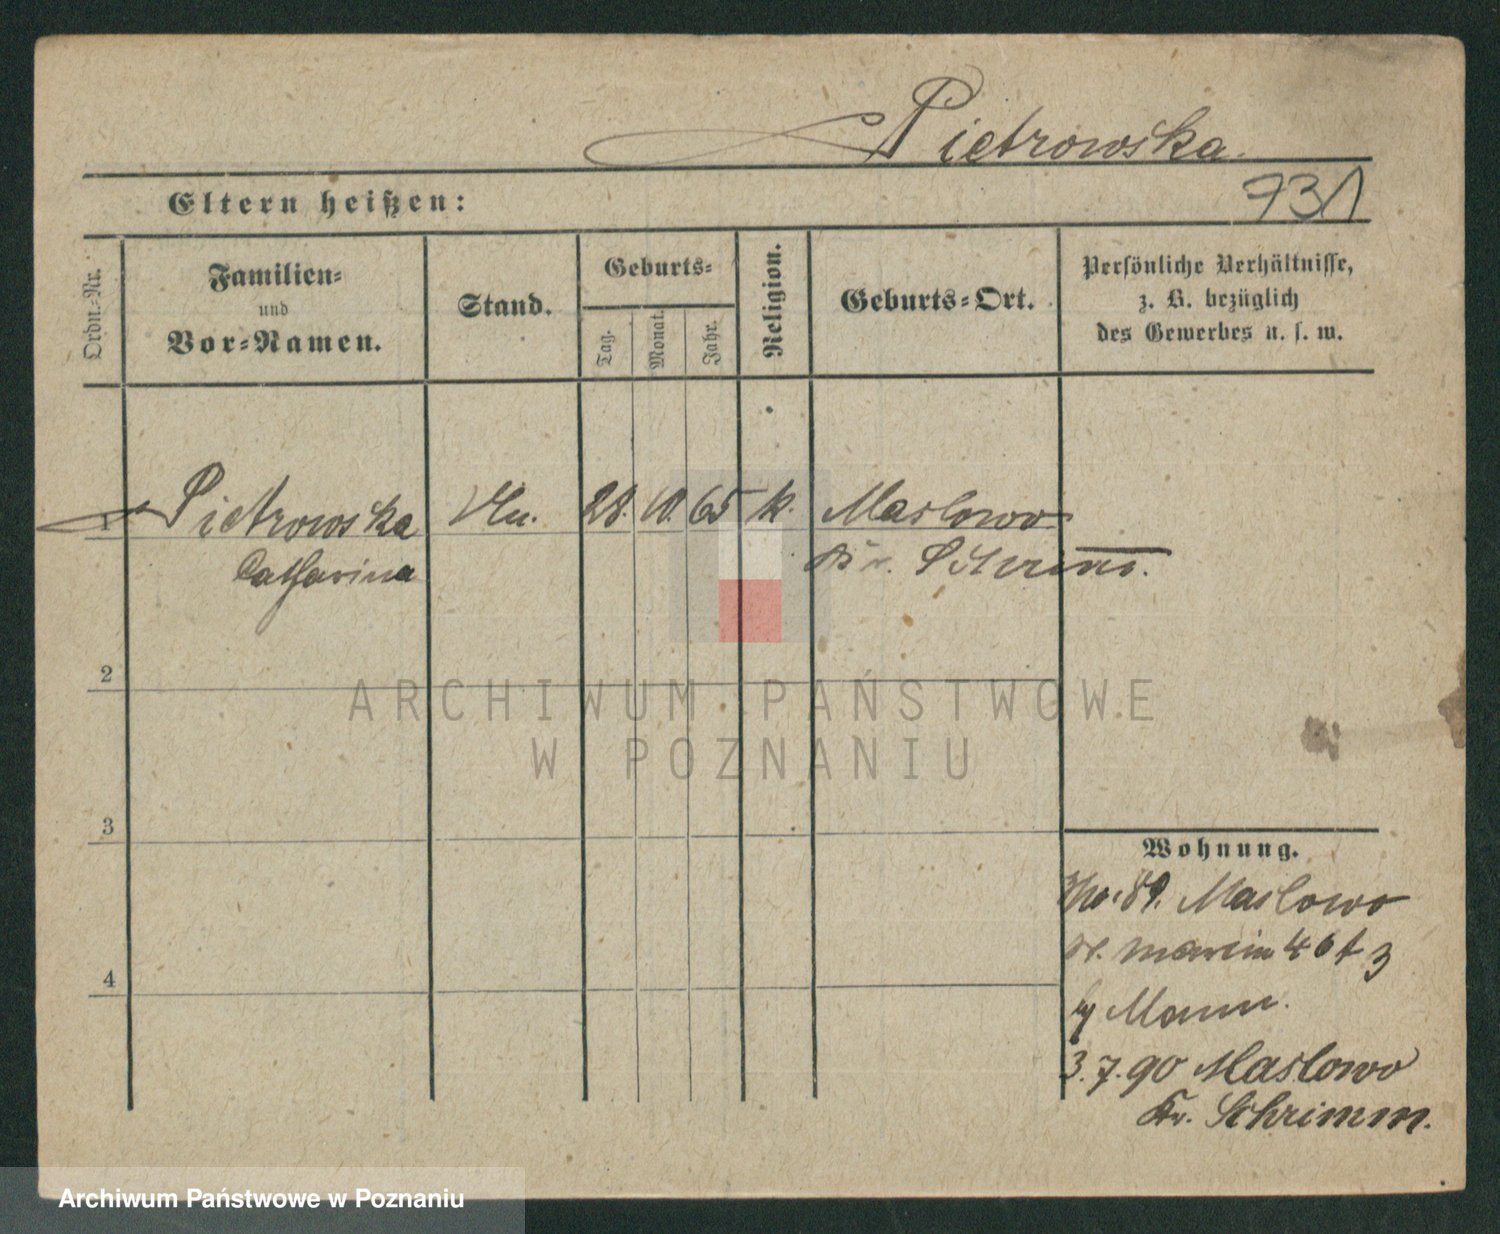 Pietrowska.
Eltern heißen:
931
Ordn.-Nr.
Familien-
und
Vor-Namen.
Stand.
Geburts-
Tag.
Monat.
Jahr.
Religion.
Geburts-Ort.
Persönliche Verhältnisse,
z. B. bezüglich
des Gewerbes u. s. w.
1 Pietrowska 28. 10. 65 k. Maslowo
Catharina Kr. Schrimm.
2
3
4
Wohnung.
89. Maslowo
Marcin 46
Mann.
3.7.90 Maslowo
Kr. Schrimm.
ARCHIWUM PAŃSTWOWE
W POZNANIU
Archiwum Państwowe w Poznaniu